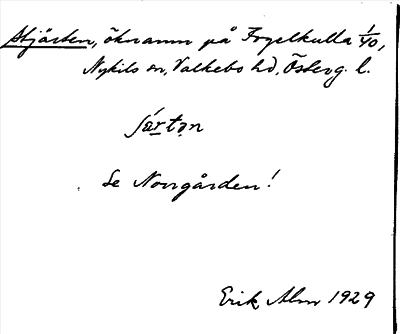 Stjärten, öknamn på Fogelkulla 1/40,
Nykils sn, Valkebo hd, Österg. l.
Se Norrgården!
Erik Alm 1929